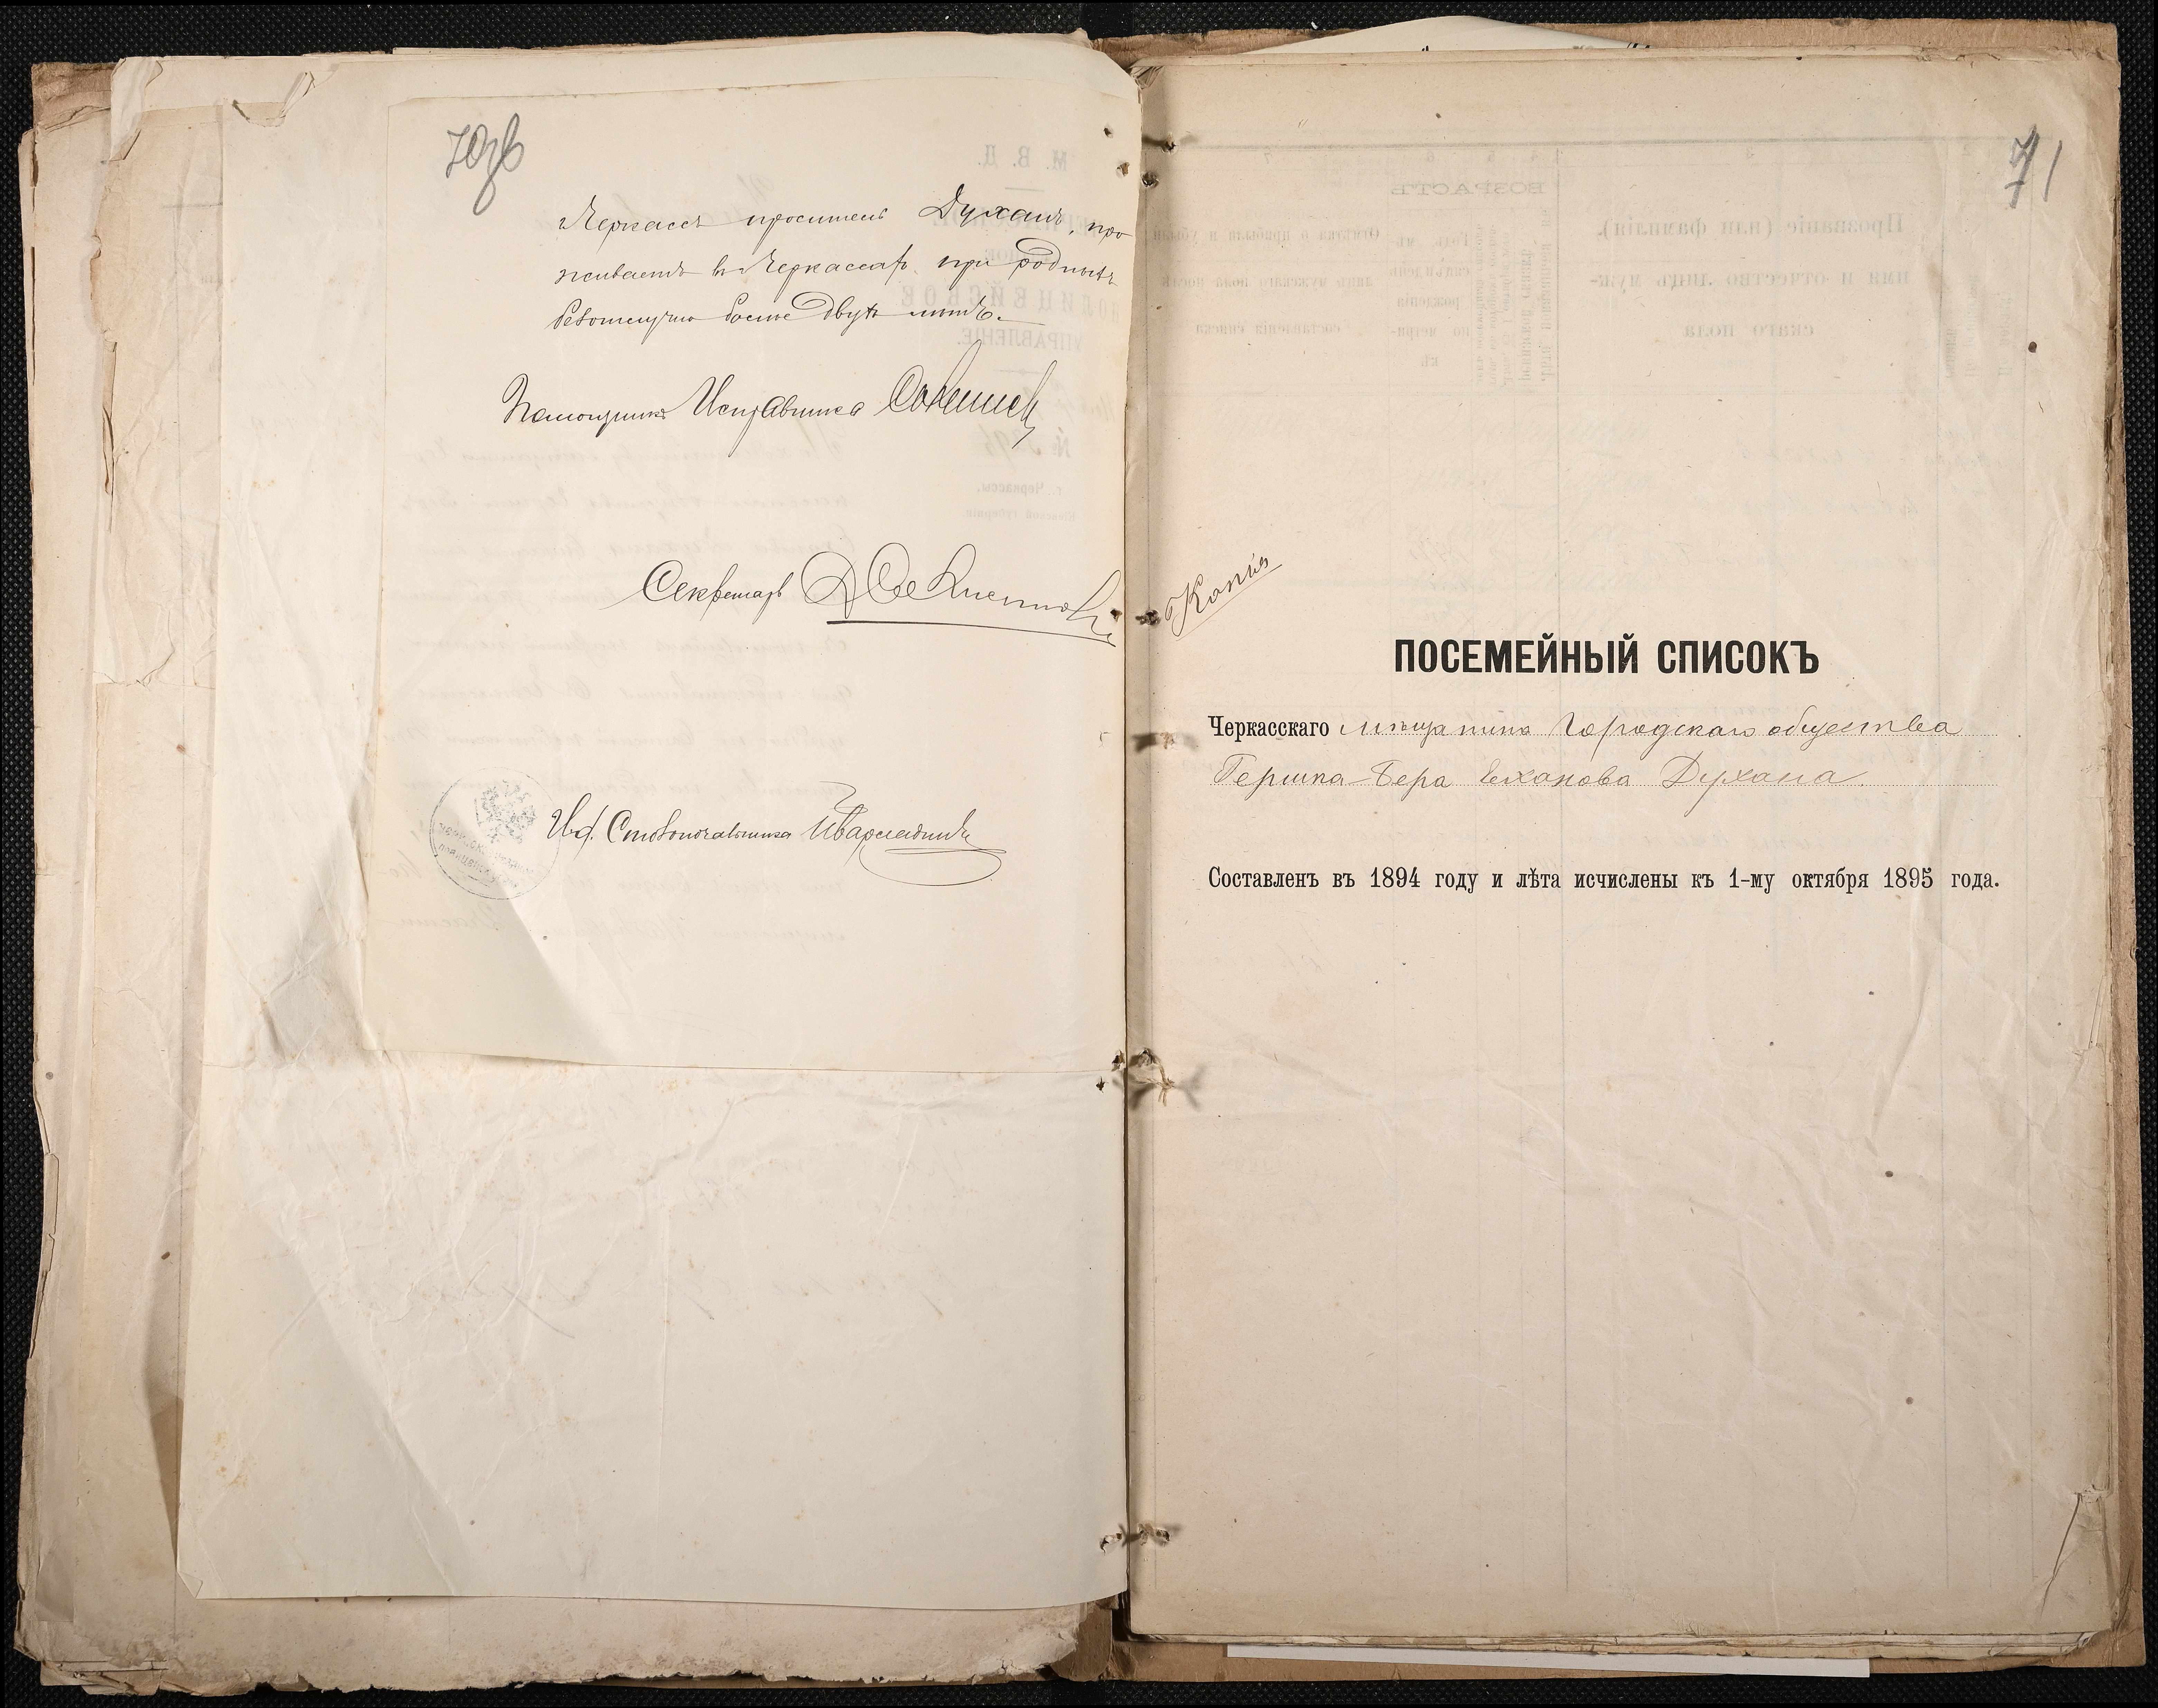 70об
Черкассъ проситель Духанъ, про
живаетъ въ Черкассахъ при родныхъ
безотлучно более двухъ летъ.
Помощникъ Исправника
Секретарь
И.д. Столоначальника
71
Копія
ПОСЕМЕЙНЫЙ СПИСОКЪ
Черкасскаго мѣщанина Городскаго общества
Гершка-Бера Духана.
Составленъ въ 1894 году и лѣта исчислены къ 1-му октября 1895 года.